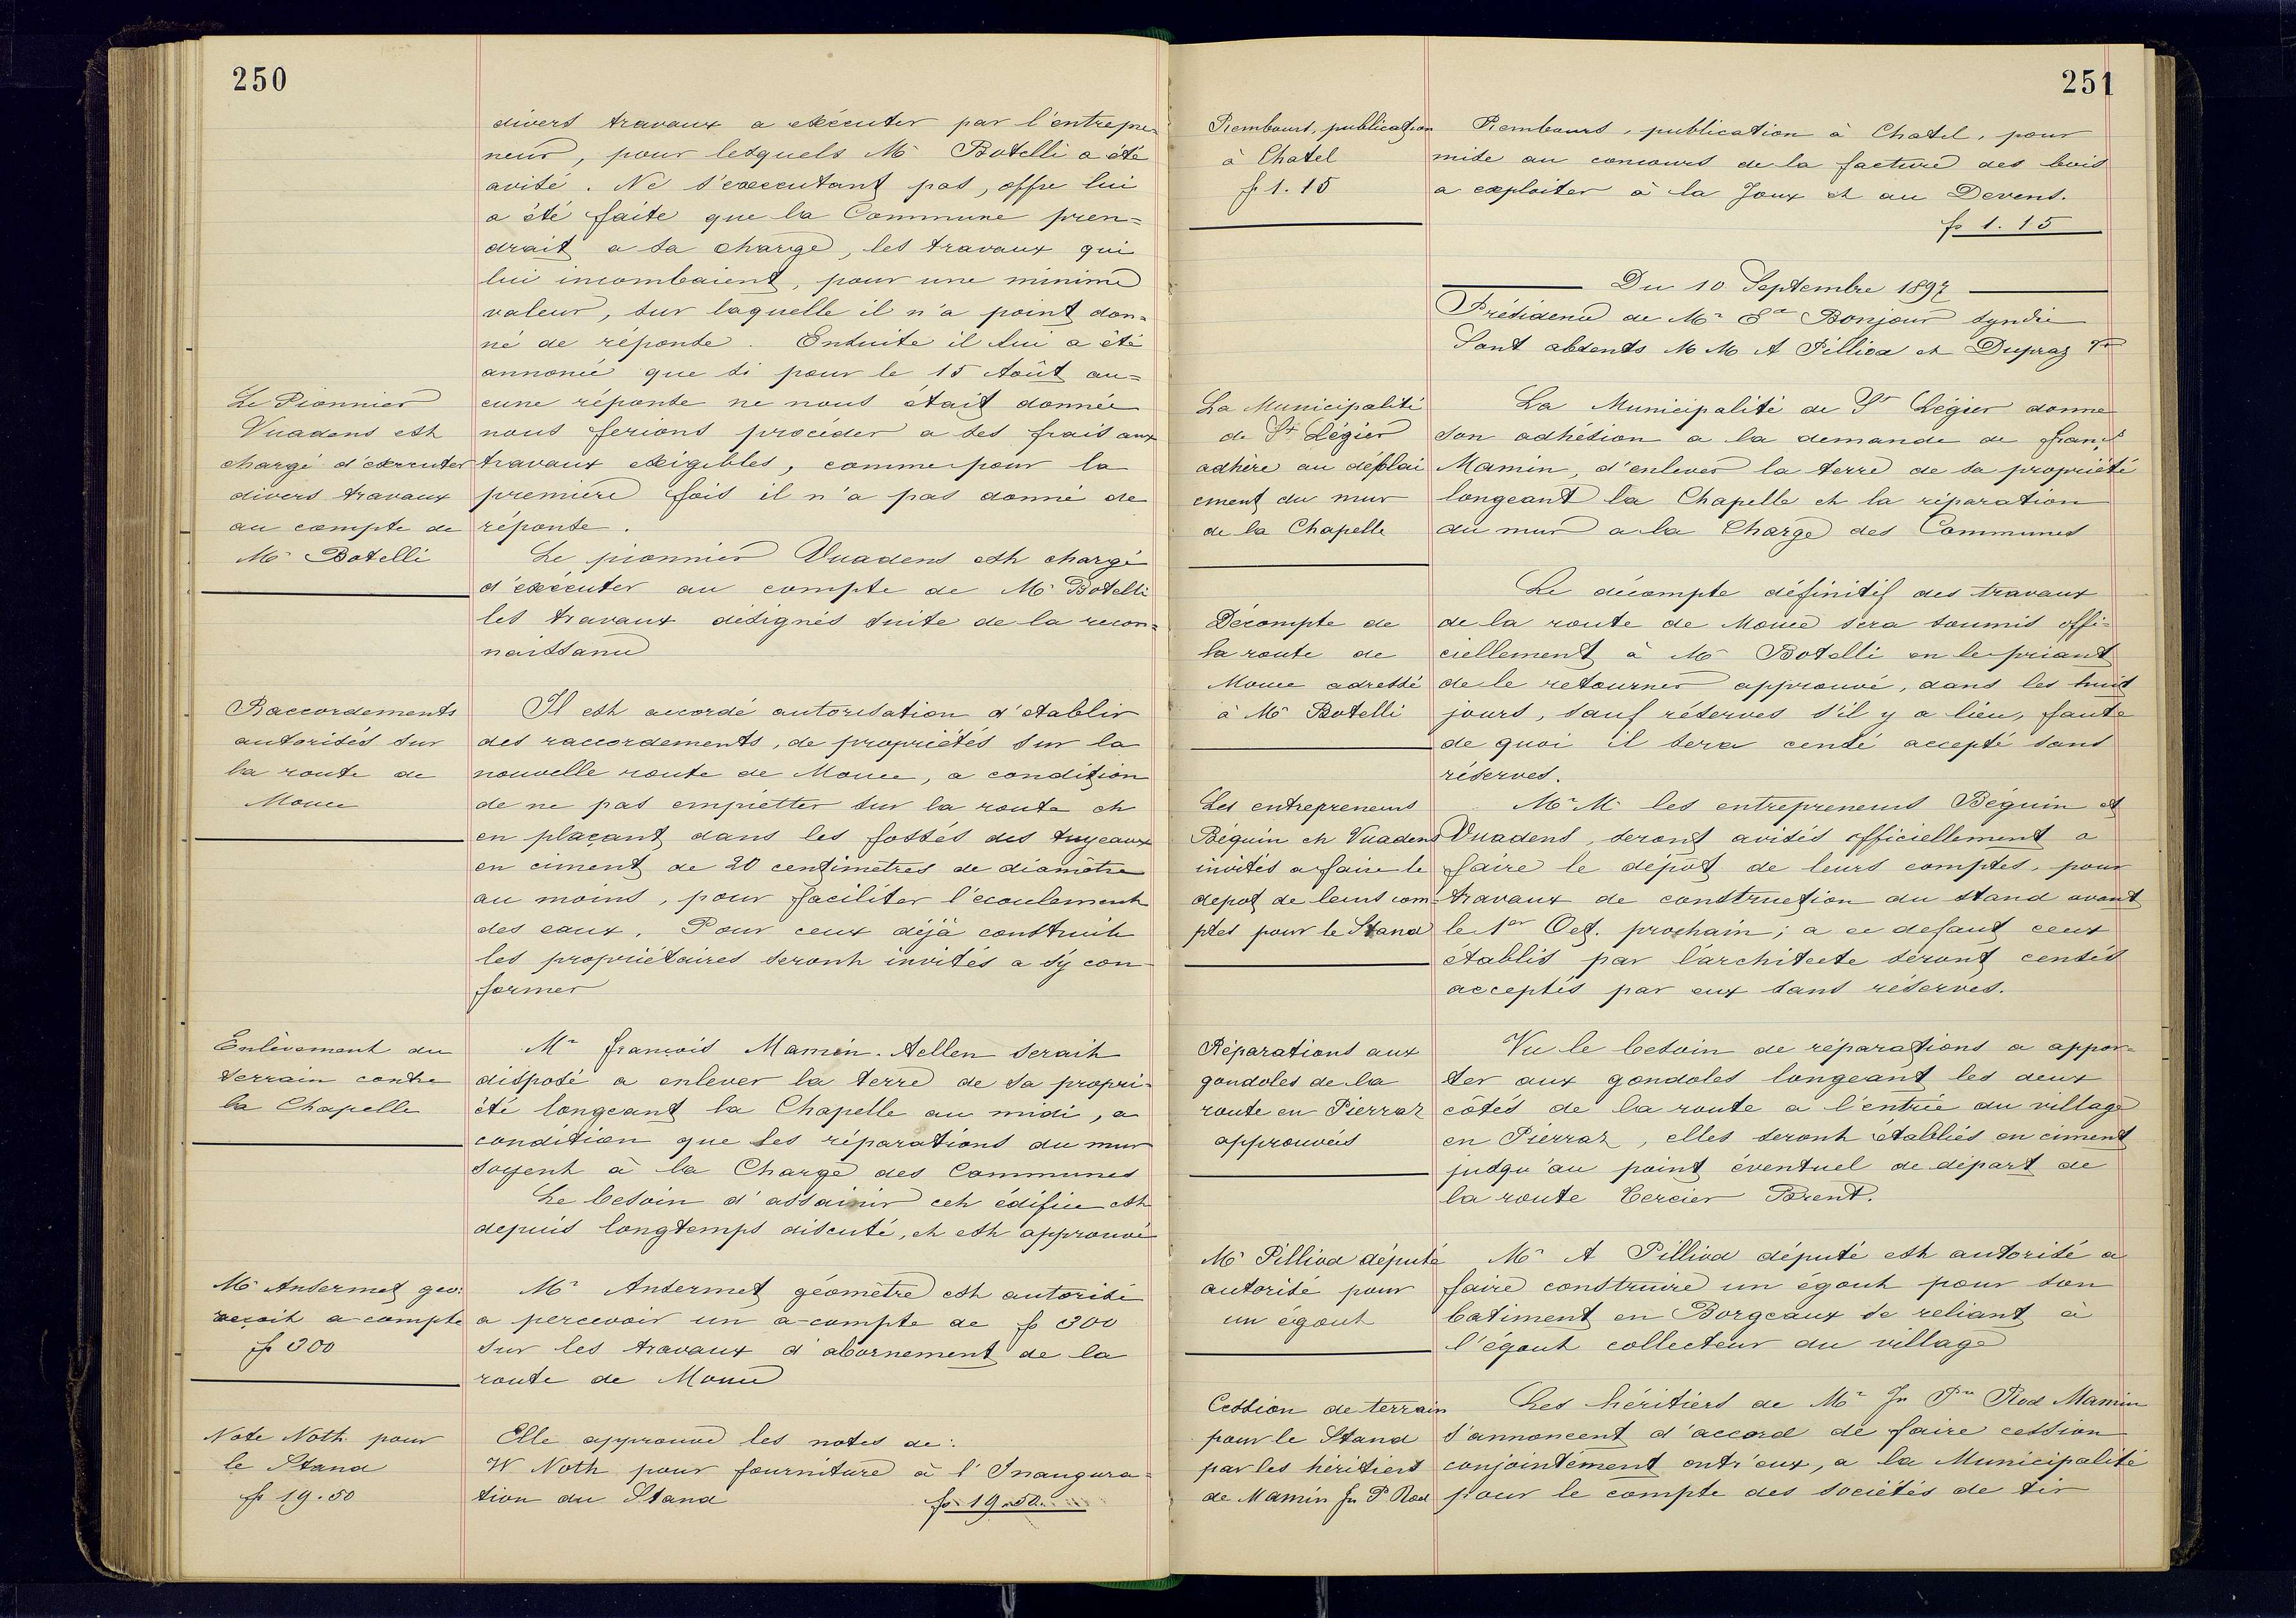 250
divers travaux a exécuter par l'entrepre-
neur, pour lesquels Mr Botelli a été
avisé. Ne s'execcutant pas, offre lui
a été faite que la Commune pren=
drait a sa charge, les travaux qui
lui incombaient, pour une minime
valeur, sur laquelle il n'a point don=
né de réponse. Ensuite il lui a été
annoncé que si pour le 15 Août au=
cune réponse ne nous était donnée
nous ferions procéder a ses frais aux
travaux exigibles, comme pour la
première fois il n'a pas donné de
réponse.
Le Pionnier
Vuadens est
chargé d'exécuter
divers travaux
au compte de
Mr Botelli
Le pionnier Vuadens est chargé
d'exécuter au compte de Mr Botelli
les travaux désignés suite de la recon=
naissance
Raccordements
autorisés sur
la route de
Mouce
Il est accordé autorisation d'etablir
des raccordements, de propriétés sur la
nouvelle route de Mouce, a condition
de ne pas empietter sur la route et
en plaçant dans les fossés des tuyeaux
en ciment de 20 centimètres de diamètre
au moins, pour faciliter l'ecoulement
des eaux. Pour ceux déjà construits
les propriétaires seront invités a s'y con
former
Enlèvement du
terrain contre
la Chapelle
Mr François Mamin-Aellen serait
disposé a enlever la terre de sa propri-
été longeant la Chapelle au midi, a
condition que les réparations du mur
soyent à la Charge des Communes
Le besoin d'assainir cet édifice est
depuis longtemps discuté, et est approuvé
Mr Ansermet géo:
reçoit a-compte
fr 300
Mr Ansermet géomètre est autorisé
a percevoir un a-compte de fr 300
sur les travaux d'abornement de la
route de Mouce
Note Noth pour
le Stand
fr 19.50
Elle approuve les notes de:
W Noth pour fourniture à l'Inaugura=
tion du Stand fr 19.50
251
Rembours, publication
à Chatel
fr 1.15
Rembours, publication à Chatel, pour
mise au concours de la facture des bois
a exploiter à la Joux et au Devens.
fr 1.15
Du 10 Septembre 1897
Présidence de Mr Bonjour syndic
Sont absents MM A Pilliod et Dupraz
La Municipalité
de St Légier
adhère au déplai
cement du mur
de la Chapelle
La Municipalité de St Légier donne
son adhésion a la demande de Franç
Mamin, d'enlever la terre de sa propriété
longeant la Chapelle et la réparation
du mur a la Charge des Communes
Décompte de
la route de
Mouce adressé
à Mr Botelli
Le décompte définitif des travaux
de la route de Mouce sera soumis offi=
ciellement à Mr Botelli en le priant
de le retourner approuvé, dans les huit
jours, sauf réserves s'il y a lieu, faute
de quoi il sera censé accepté sans
réserves.
Les entrepreneurs
Béguin et Vuadens
invités a faire le
dépot de leurs com=
ptes pour le Stand
Mr M. les entrepreneurs Béguin et
Vuadens, seront avisés officiellement a
faire le dépôt de leurs comptes, pour
travaux de construction du stand avant
le 1er Oct. prochain; a ce defaut ceux
établis par l'architecte seront censés
acceptés par eux sans réserves.
Réparations aux
gondoles de la
route en Pierraz
approuvées
Vu le besoin de réparations a appor=
ter aux gondoles longeant les deux
côtés de la route a l'entrée du village
en Pierraz, elles seront établies en ciment
jusqu'au point éventuel de départ de
la route Cercier Porent.
Mr Pilliod député
autorisé pour
un égout
Mr A Pilliod député est autorisé a
faire construire un égout pour son
batiment en Borgeaux se reliant à
l'égout collecteur du village
Cession de terrain
pour le Stand
par les héritiers
de Mamin Jn P Rod
Les héritiers de Mr Jn Pre Rod Mamin
s'annoncent d'accord de faire cession
conjointement entr'eux, a la Municipalité
pour le compte des sociétés de tir